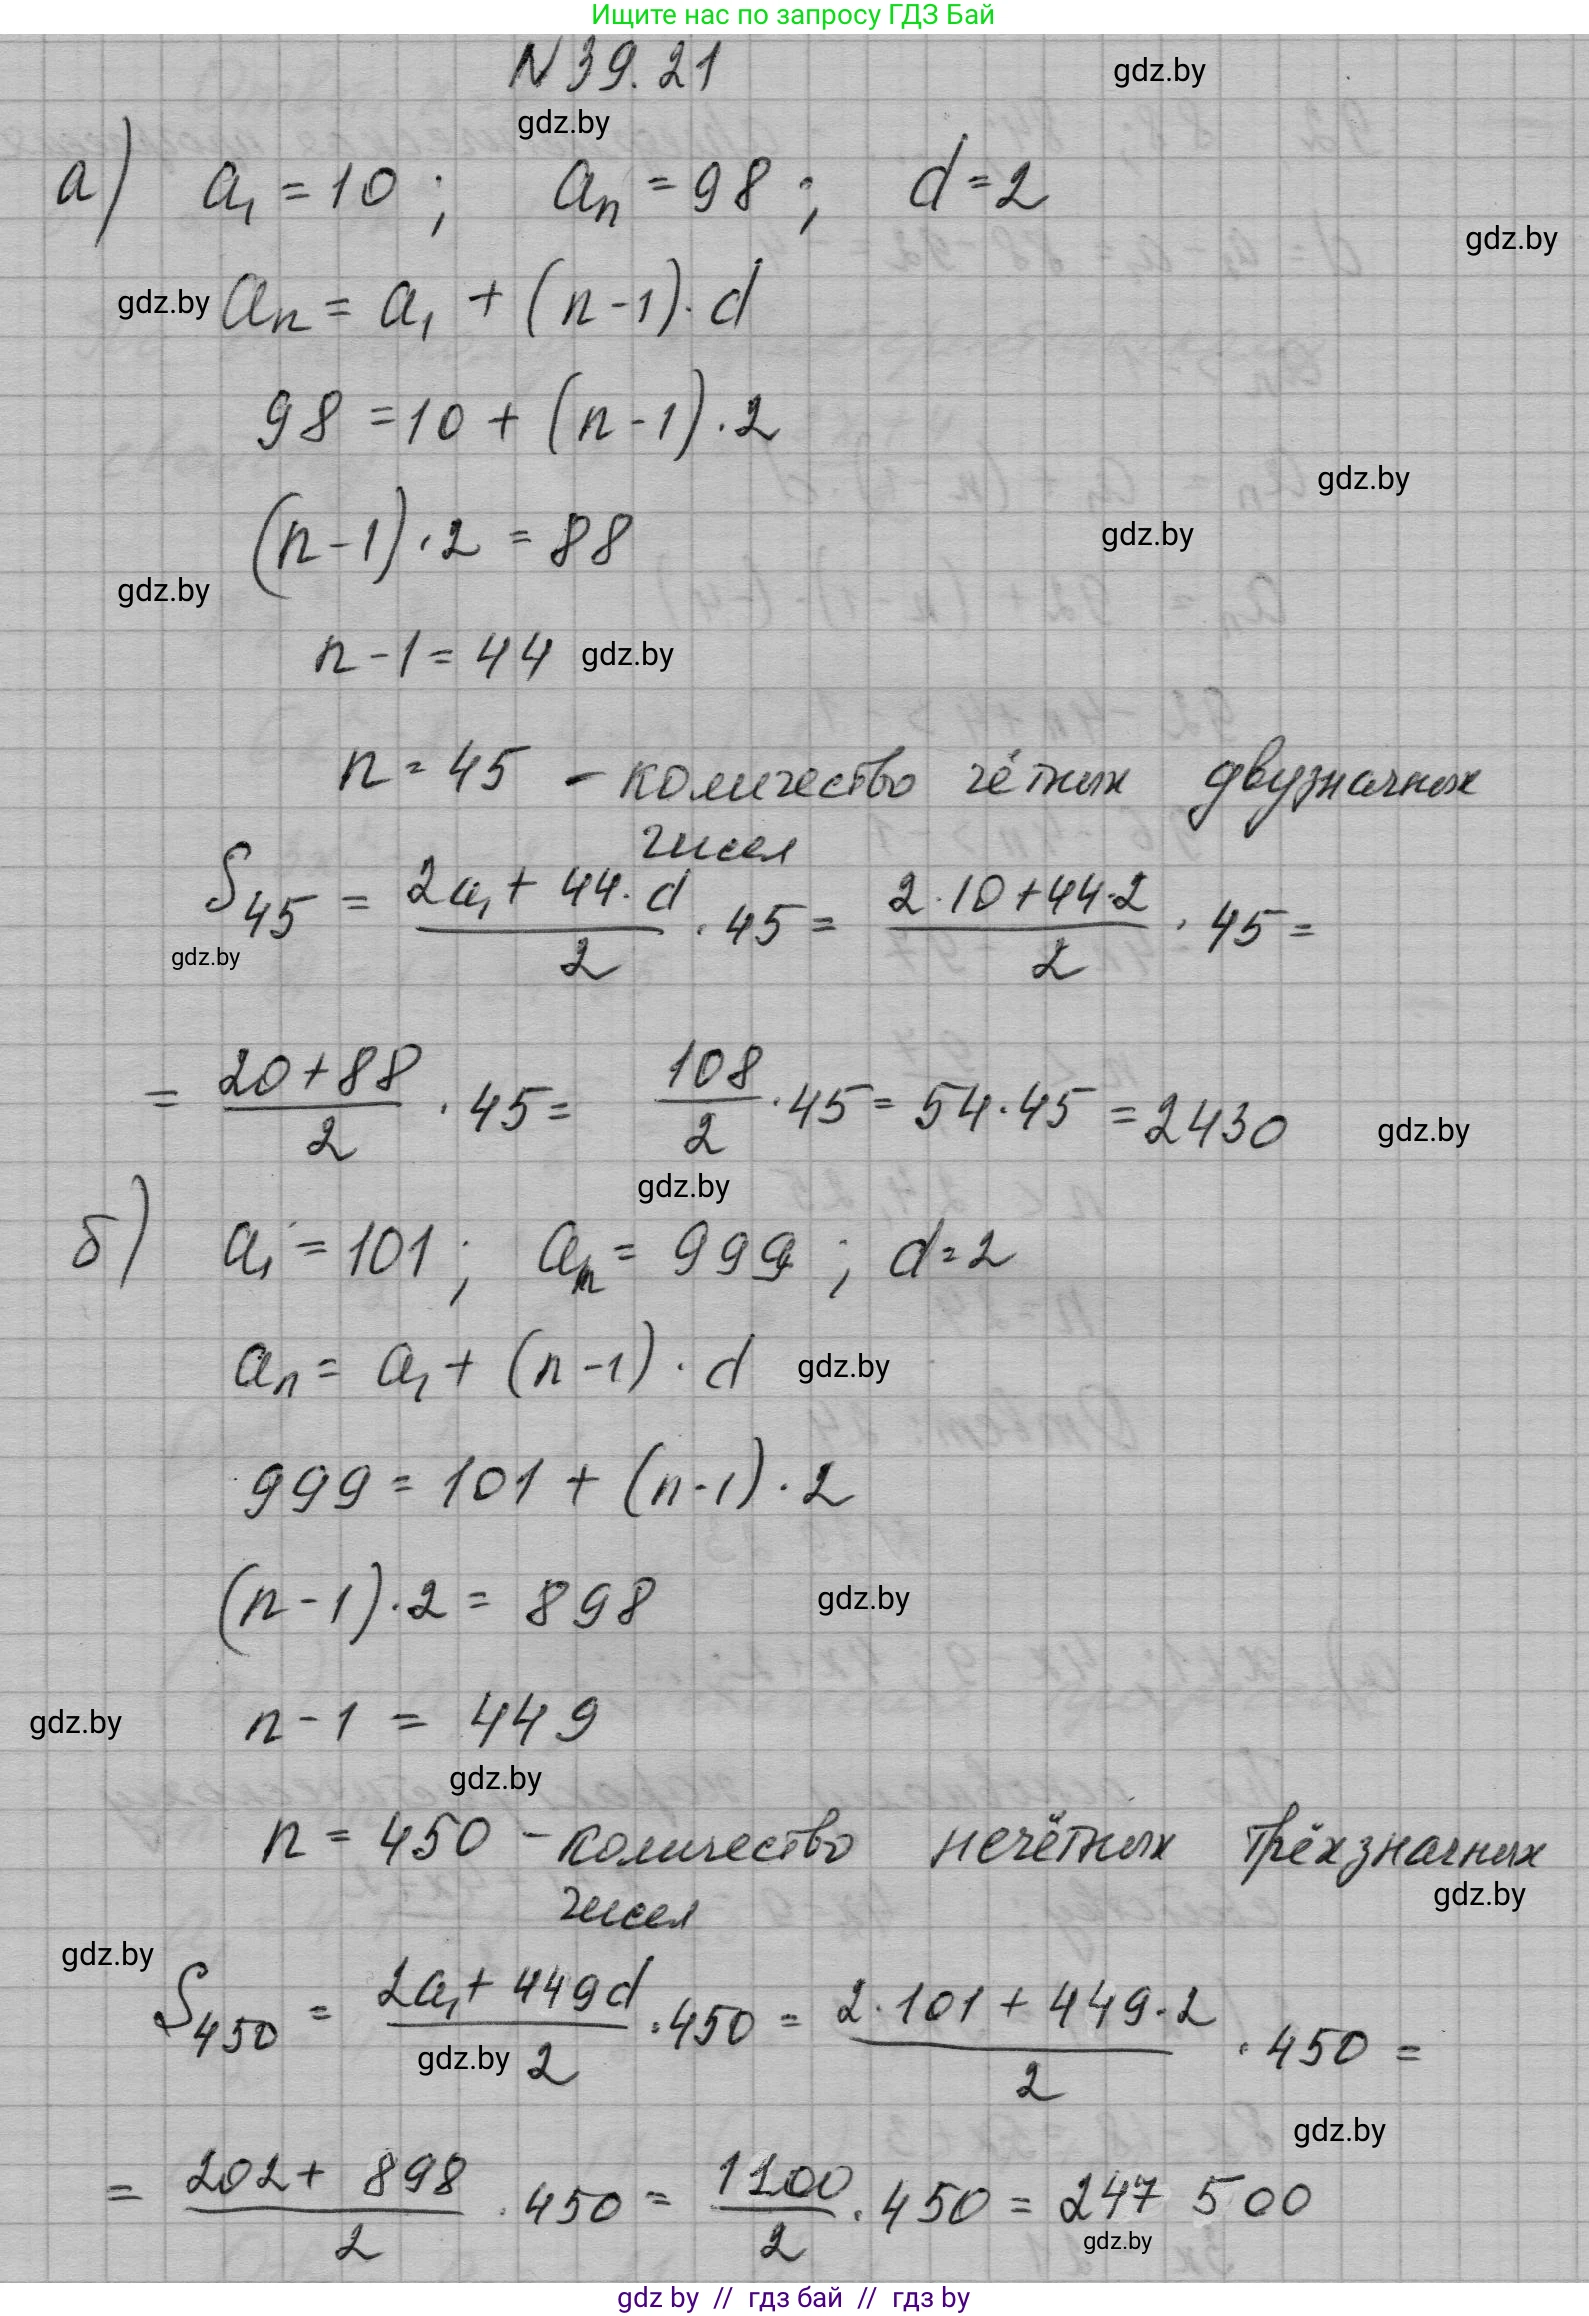 Ищите нас по запросу ГДЗ Бай
N 39.21
gdz.by
gdz.by
а) a₁ = 10 ; aₙ = 98 ; d = 2
gdz.by
gdz.by aₙ = a₁ + (n-1)·d
98 = 10 + (n-1)·2
gdz.by
(n-1)·2 = 88
gdz.by
gdz.by
n-1 = 44 gdz.by
n = 45 – количество чётных двузначных
чисел
S₄₅ = (2a₁ + 44·d)/2 · 45 = (2·10+44·2)/2 · 45 =
gdz.by
= (20+88)/2 · 45 = 108/2 · 45 = 54·45 = 2430
gdz.by
gdz.by
б) a₁ = 101 ; aₙ = 999 ; d = 2
aₙ = a₁ + (n-1)·d gdz.by
999 = 101 + (n-1)·2
(n-1)·2 = 898 gdz.by
n-1 = 449
gdz.by
gdz.by
n = 450 – количество нечётных трёхзначных
чисел
gdz.by
gdz.by
S₄₅₀ = (2a₁ + 449d)/2 · 450 = (2·101 + 449·2)/2 · 450 =
gdz.by
gdz.by
= (202 + 898)/2 · 450 = 1100/2 · 450 = 247 500
gdz.by
gdz by // гдз бай // гдз by